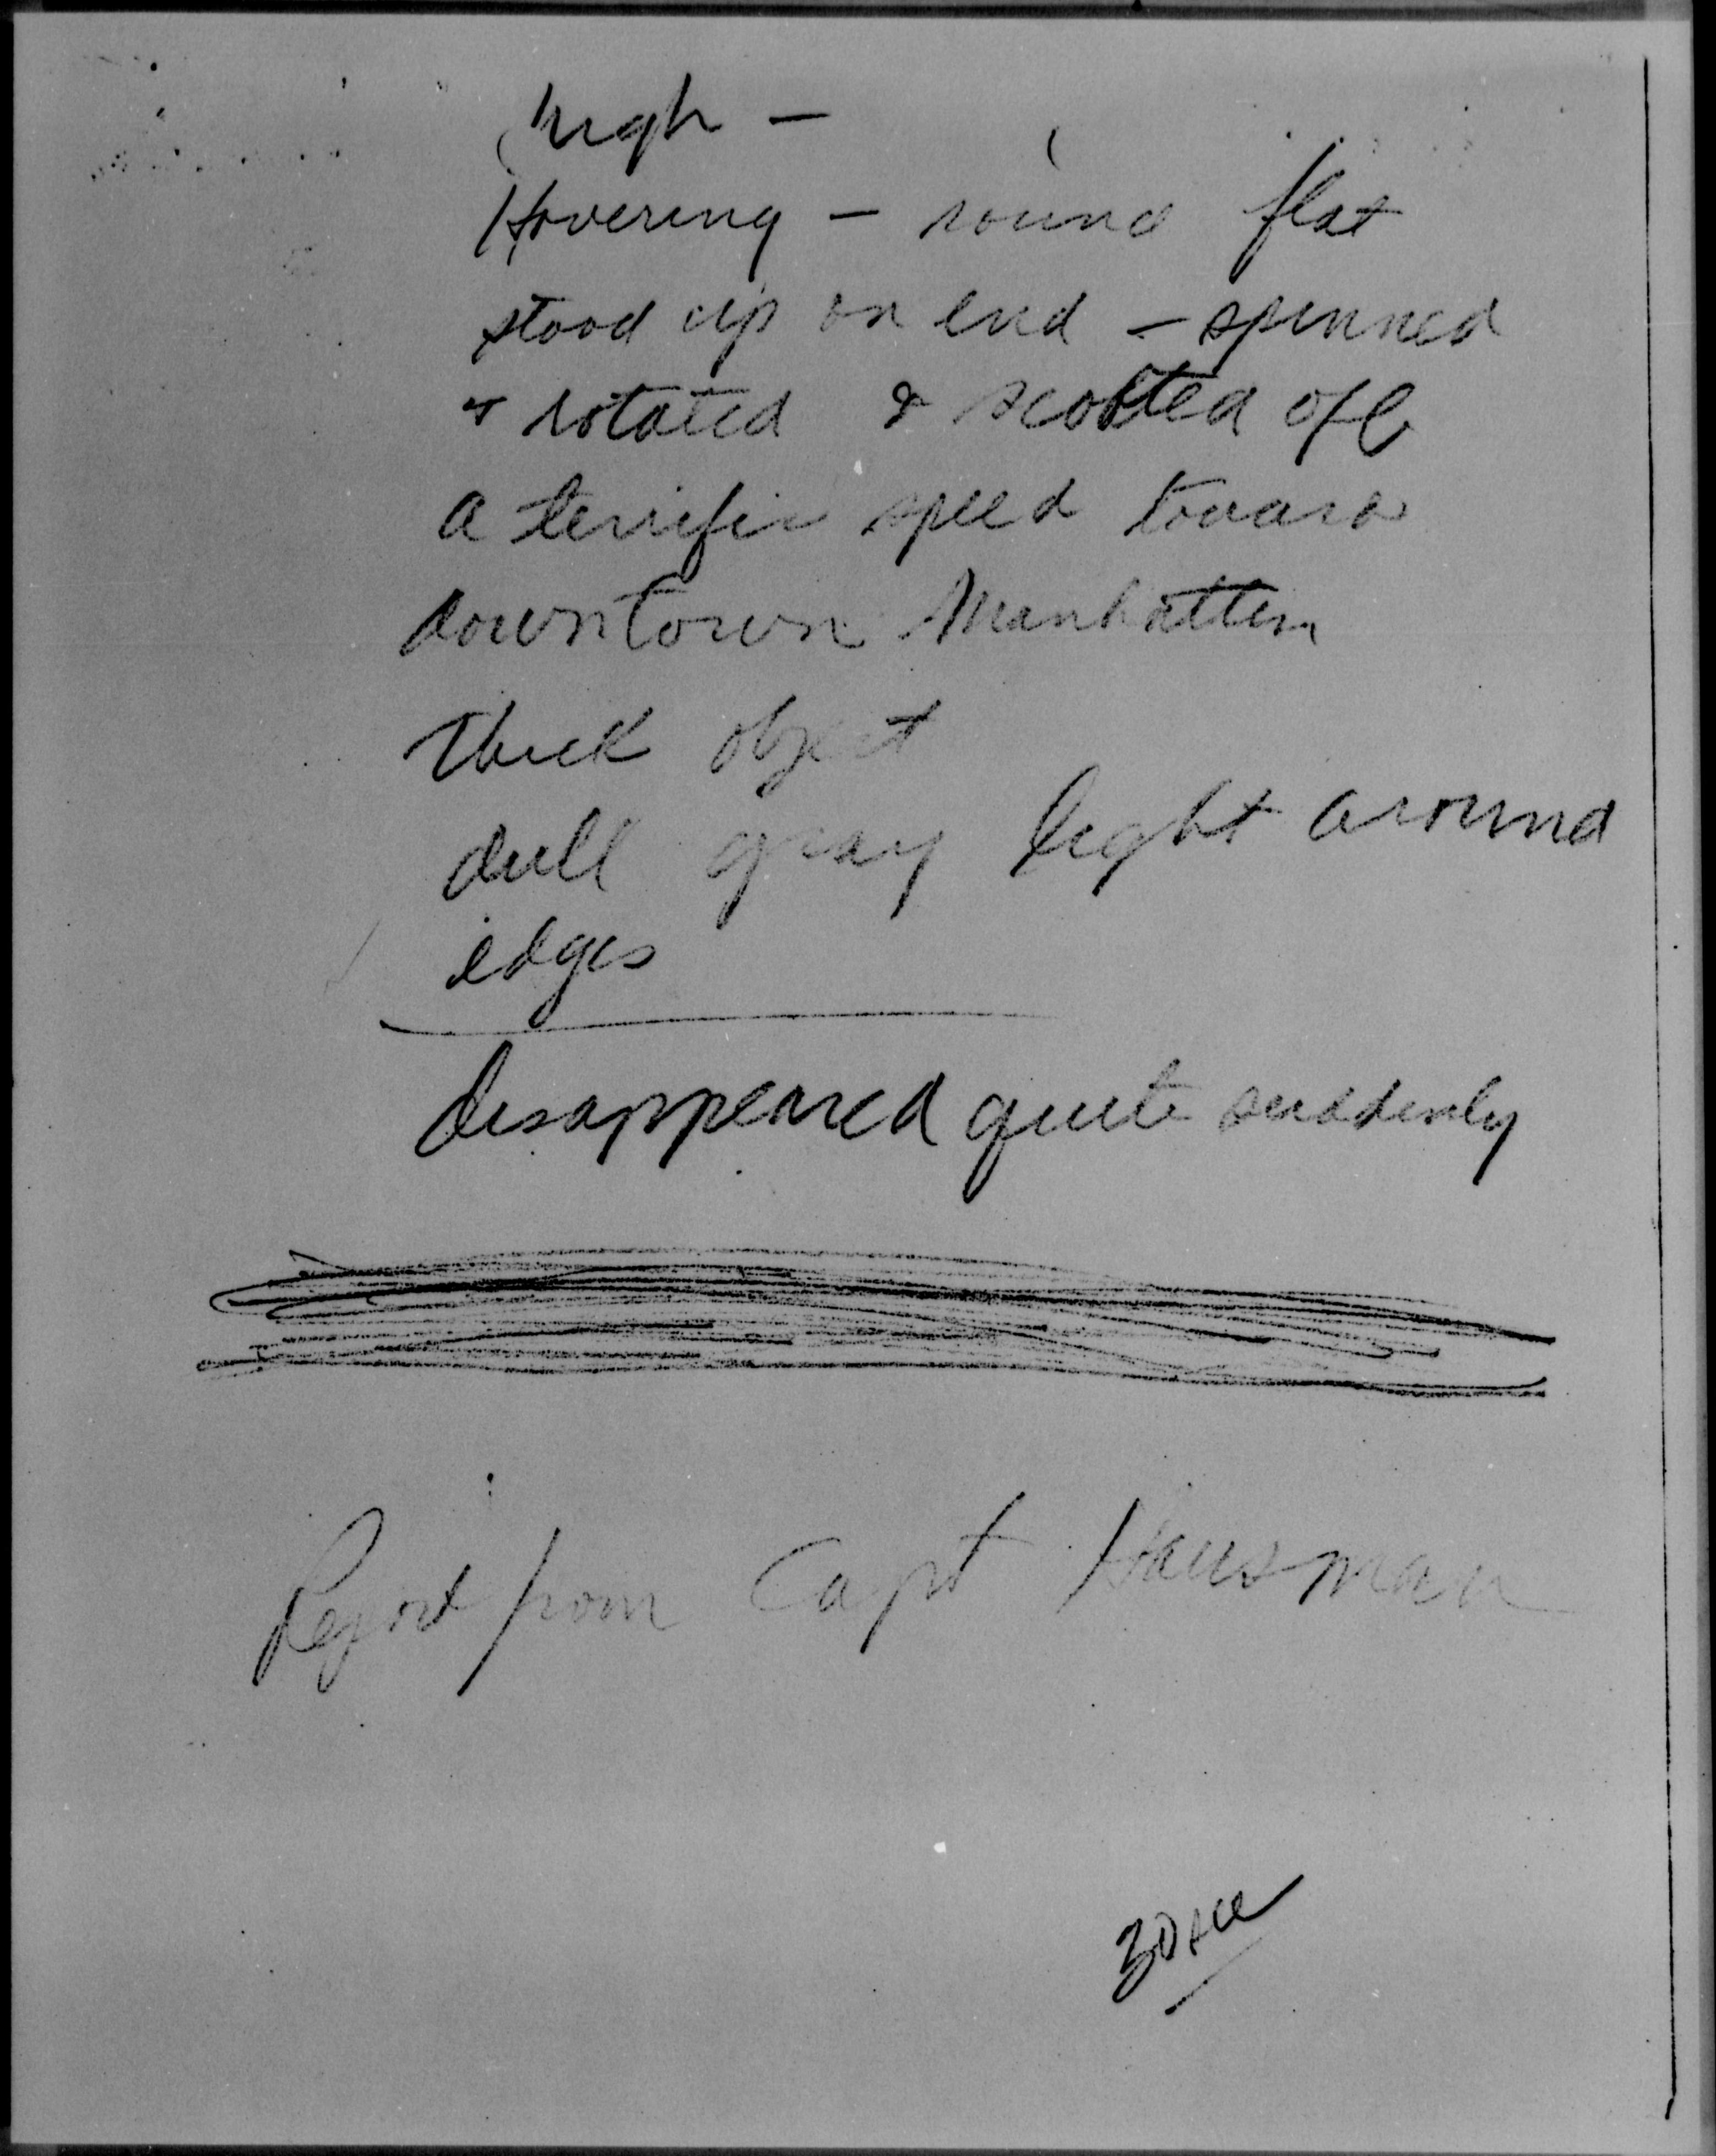 high —
Hovering — round flat
stood up on end — spinned
& rotated & scooted off
a terrific speed toward
downtown Manhatten
thick object
dull gray light around
edges
disappeared quite suddenly
Report from Capt Hausman